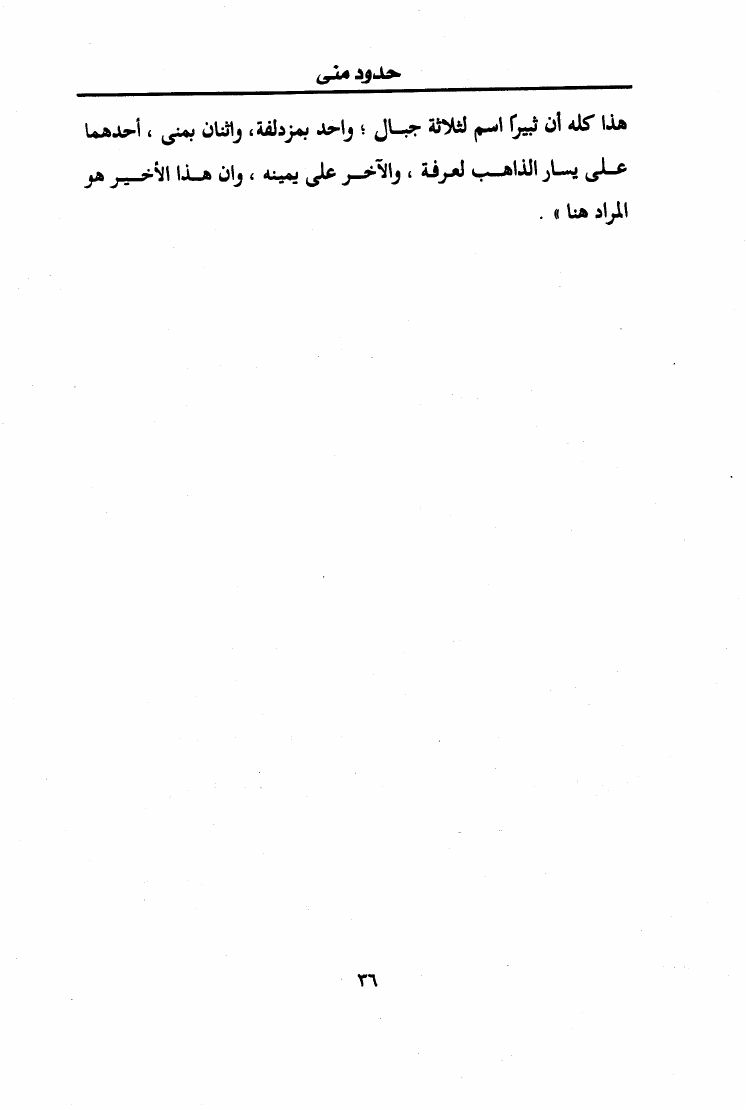 حدود منى
هذا كله أن ثبيرًا اسم لثلاثة جبال ؛ واحد بمزدلفة، واثنان بمنى ، أحدهما
على يسار الذاهب لعرفة ، والآخر على يمينه ، وان هذا الأخير هو
المراد هنا » .
٣٦